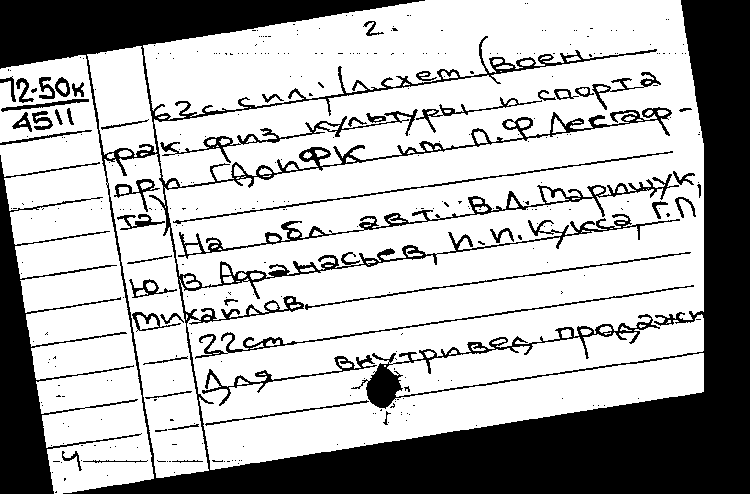 2.
72-50к
4511
62с. с ил.; 1л.схем. (Воен.
фак. физ культуры и спорта
при ГДОИФК им. П.Ф.Лесгаф-
та).
На обл. авт.: В.Л. Марищук,
Ю.В Афанасьев, И.П. Кукса, Г.П
Михайлов.
22см.
Для внутривед. продажи
Ч